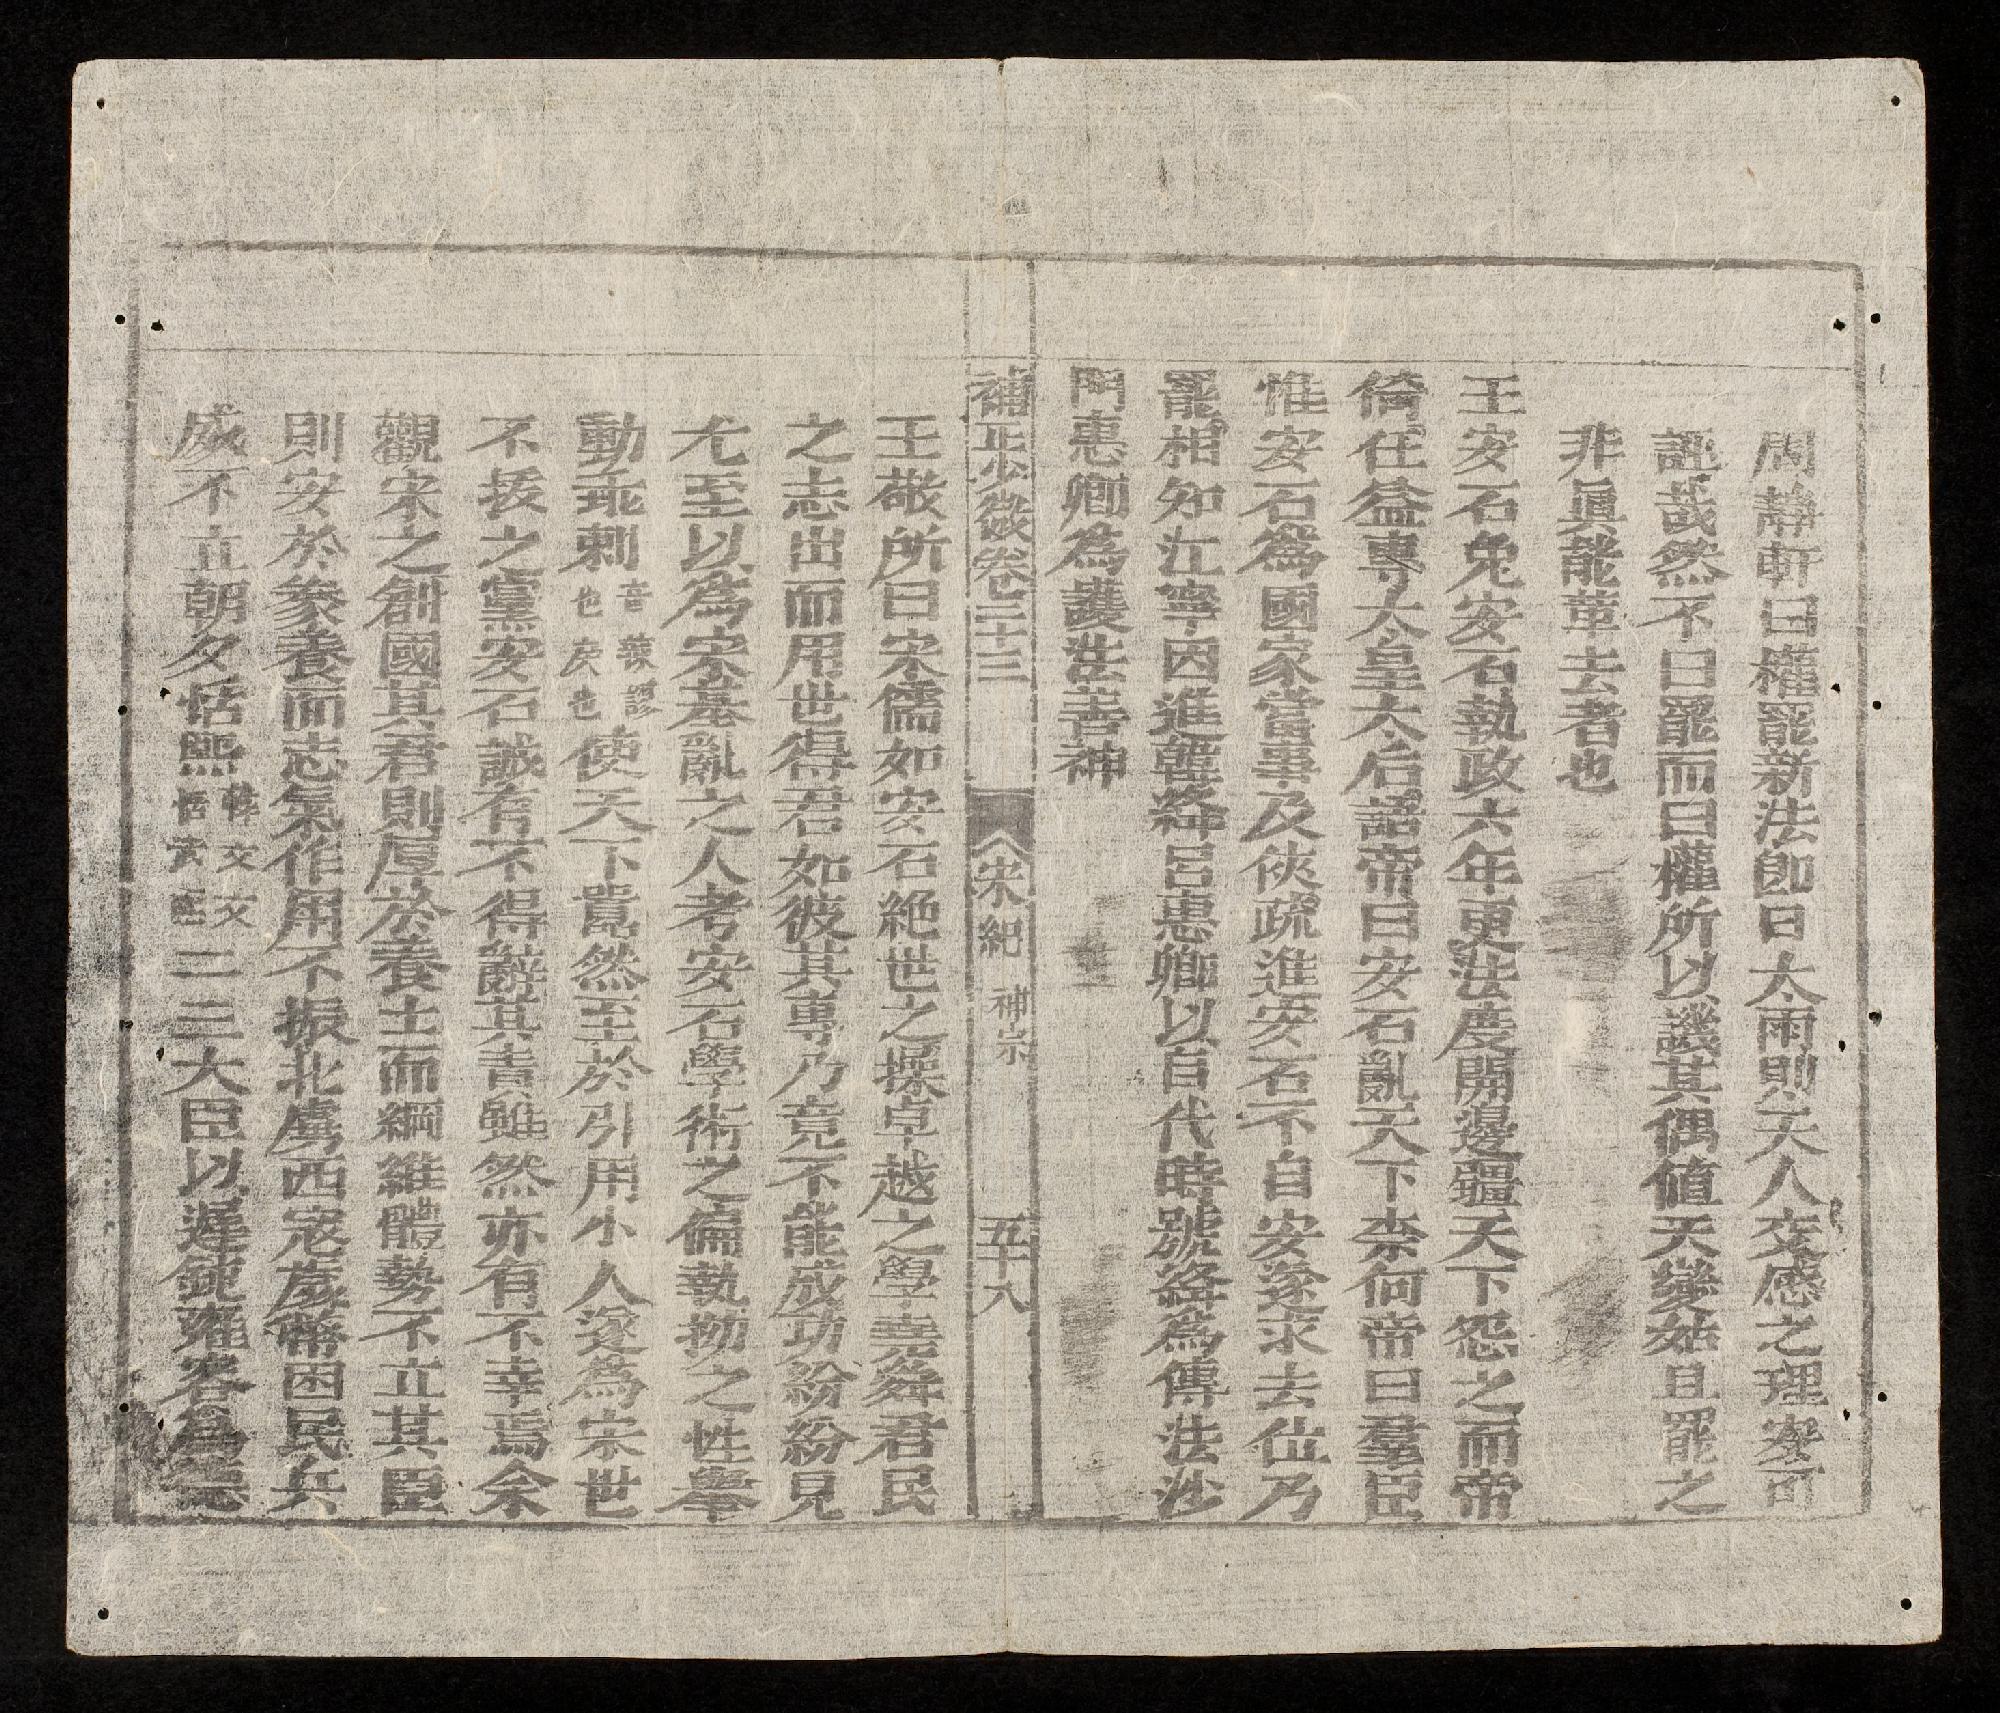 周靜軒曰權罷新法卽日大雨則天人交感之理安可
誣哉然不曰罷而曰權所以譏其偶値天變姑且罷之
非眞能革去者也
王安石免安石執政六年更法度開邊疆天下怨之而帝
倚任益專大皇太后語帝曰安石亂天下柰何帝曰羣臣
惟安石爲國家當事及俠疏進安石不自安遂求去位乃
罷相知江寧因進韓絳呂惠卿以自代時號絳爲傳法沙
門惠卿爲護法善神
補正少微卷三十三 宋紀 神宗 五十八
王敬所曰宋儒如安石絶世之操卓越之學堯舜君民
之志出而用世得君如彼其專乃竟不能成功紛紛見
尤至以爲宋基亂之人考安石學術之偏執拗之性舉
動乖剌音辣謬也戾也使天下囂然至於引用小人遂爲宋世
不拔之黨安石誠有不得辭其責雖然亦有不幸焉余
觀宋之創國其君則厚於養士而綱維體勢不立其臣
則安於豢養而志氣作用不振北虜西寇歲幣困民兵
威不立朝夕恬熙二三大臣以遲鈍雍容爲